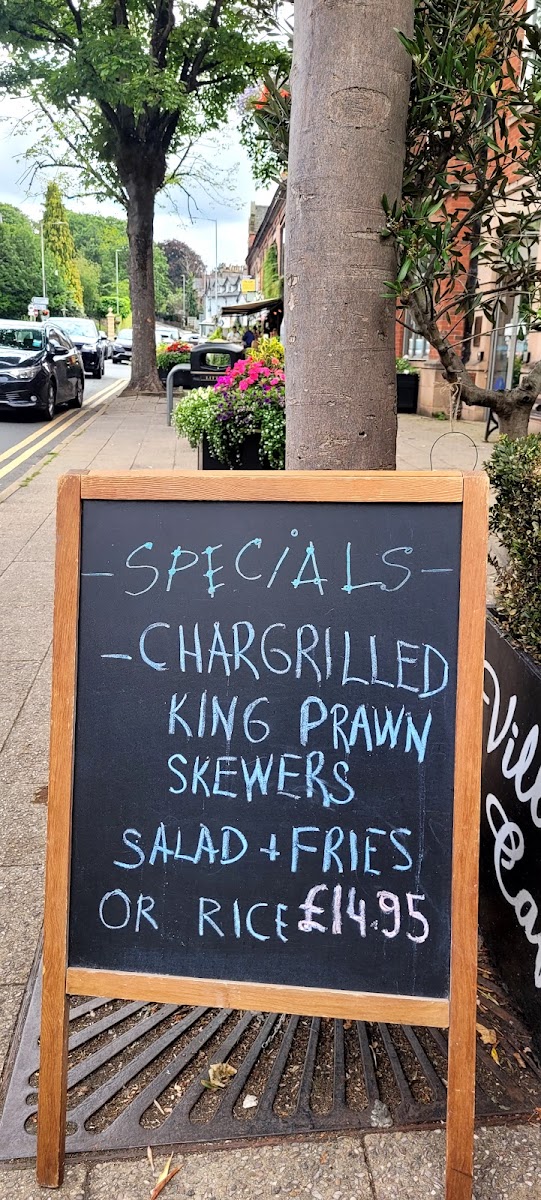 - SPECiALS -
- CHARGRILLED
KING PRAWN
SKEWERS
SALAD + FRIES
OR RICE £14.95